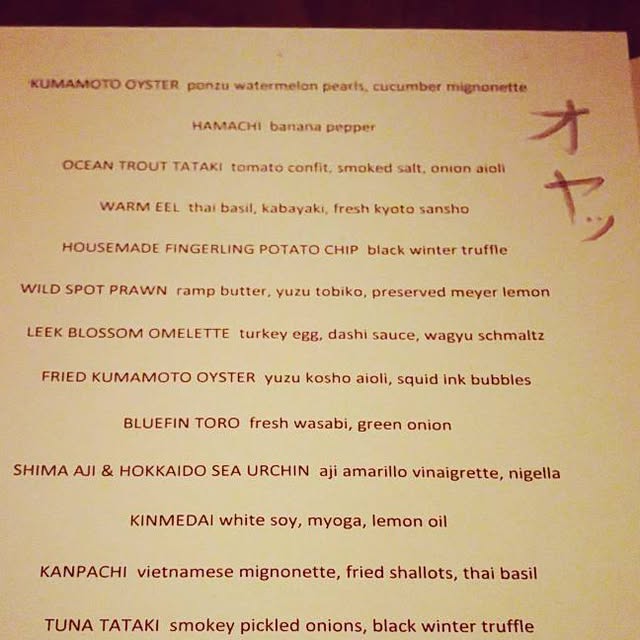 KUMAMOTO OYSTER ponzu watermelon pearls, cucumber mignonette
HAMACHI banana pepper
OCEAN TROUT TATAKI tomato confit, smoked salt, onion aioli
WARM EEL thai basil, kabayaki, fresh kyoto sansho
HOUSEMADE FINGERLING POTATO CHIP black winter truffle
WILD SPOT PRAWN ramp butter, yuzu tobiko, preserved meyer lemon
LEEK BLOSSOM OMELETTE turkey egg, dashi sauce, wagyu schmaltz
FRIED KUMAMOTO OYSTER yuzu kosho aioli, squid ink bubbles
BLUEFIN TORO fresh wasabi, green onion
SHIMA AJI & HOKKAIDO SEA URCHIN aji amarillo vinaigrette, nigella
KINMEDAI white soy, myoga, lemon oil
KANPACHI vietnamese mignonette, fried shallots, thai basil
TUNA TATAKI smokey pickled onions, black winter truffle
オヤッ